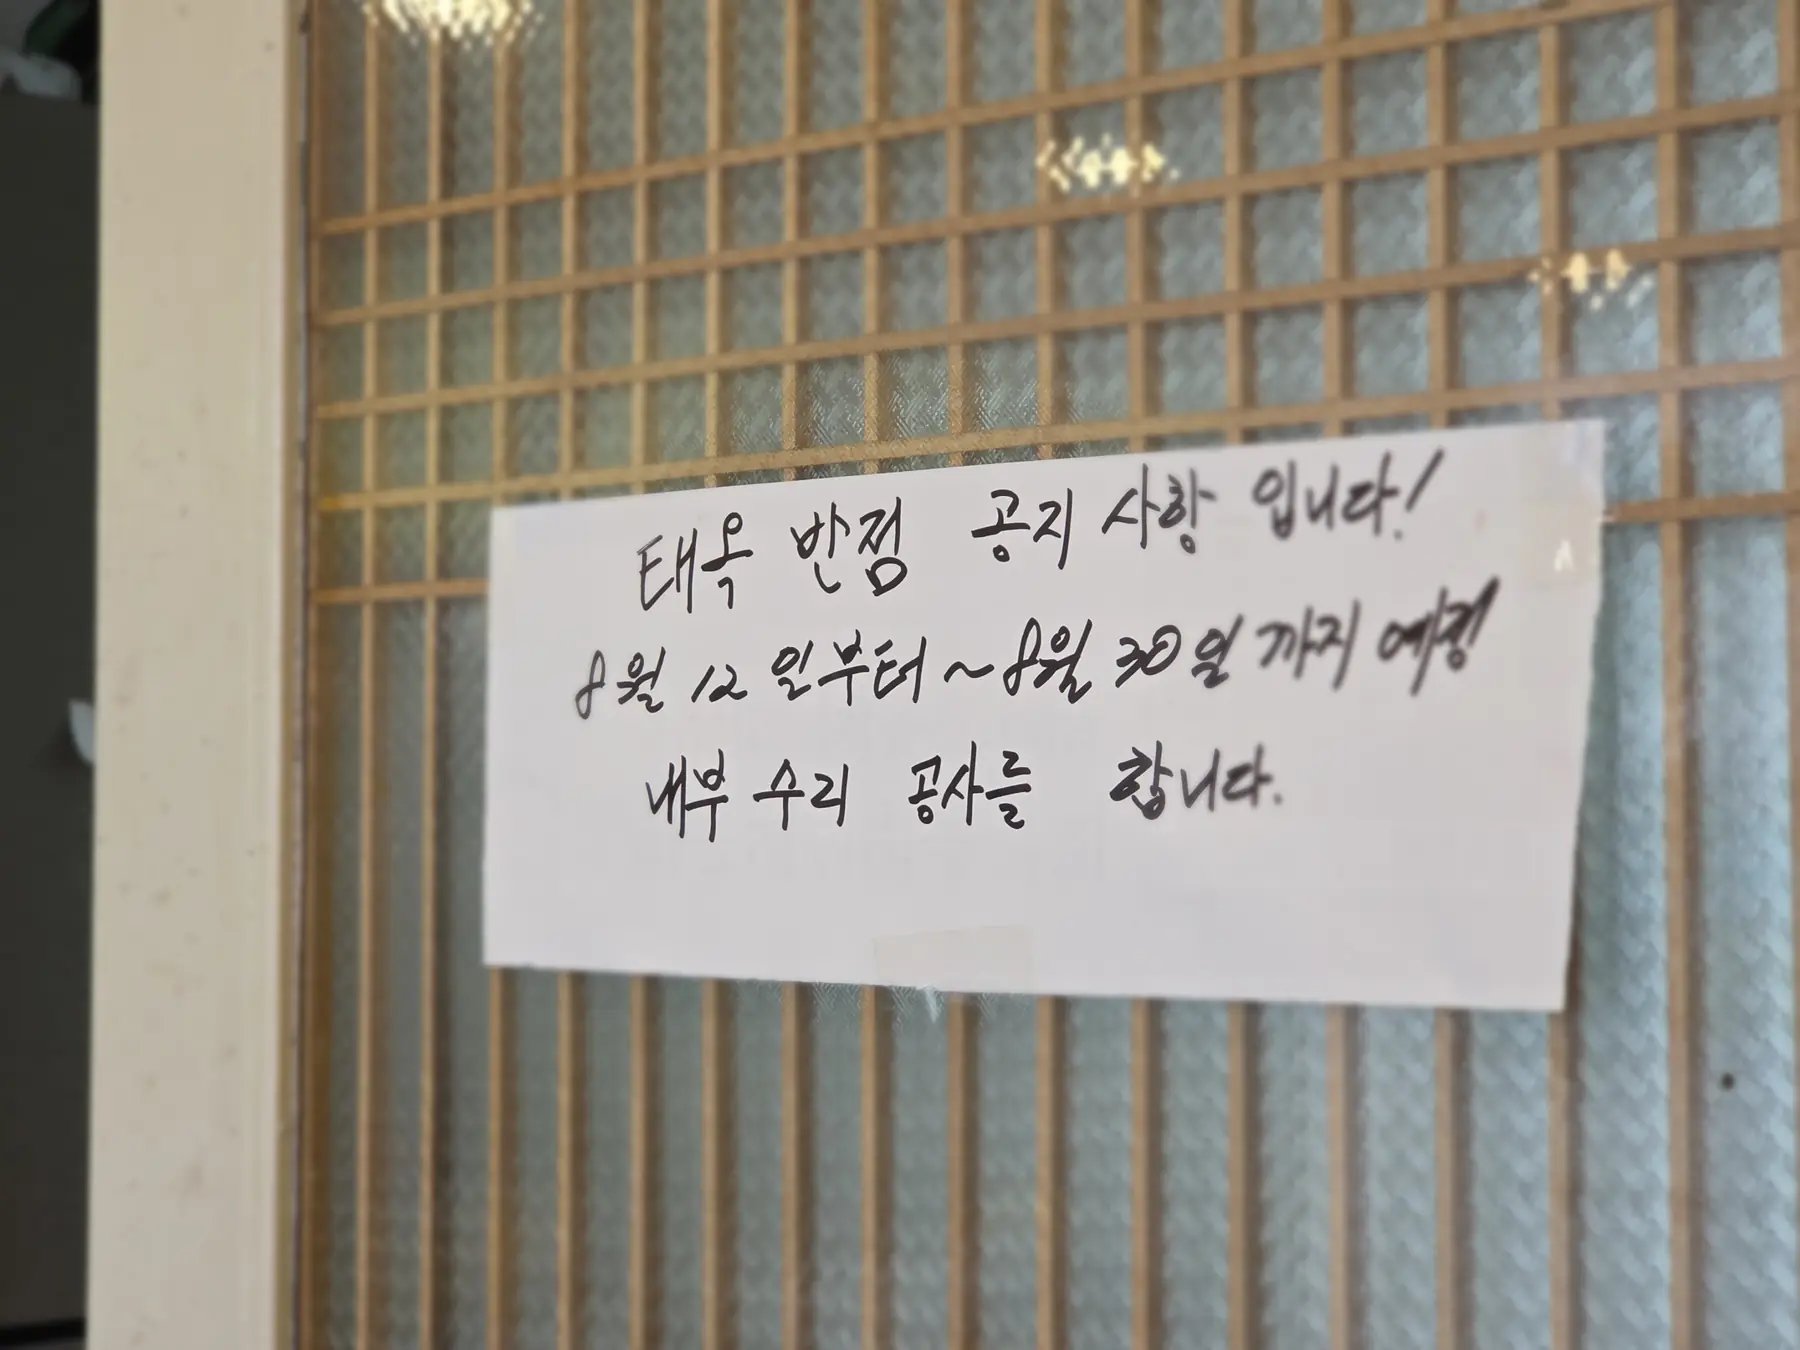 태옥 반점 공지 사항 입니다!
8월 12일부터 ~ 8월 30일 까지 예정
내부 수리 공사를 합니다.